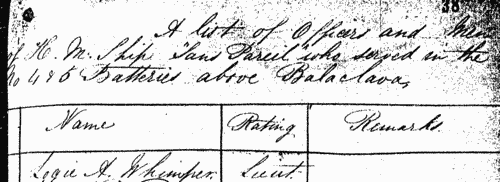 38
A list of Officers and Men
of H. M. Ship "Sans Pareil" who served in the
No 4 & 5 Batteries above Balaclava,
Name Rating Remarks.
Logie A. Whimper Lieut